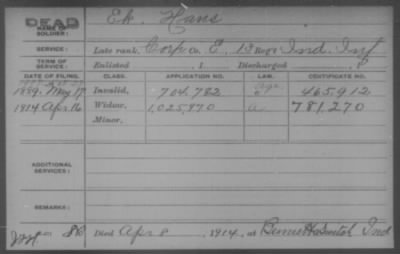 DEAD
NAME OF SOLDIER: Ek, Hans
SERVICE: Late rank, Corp Co. E, 13 Reg't Ind. Inf
TERM OF SERVICE: Enlisted , 1 Discharged , 1
DATE OF FILING. CLASS. APPLICATION NO. LAW. CERTIFICATE NO.
1889, May 17 Invalid, 704,782 465,912
1914 Apr. 16 Widow, 1,025,970 a 781,270
Minor,
ADDITIONAL SERVICES:
REMARKS:
Died Apr 8 1914, at Ind